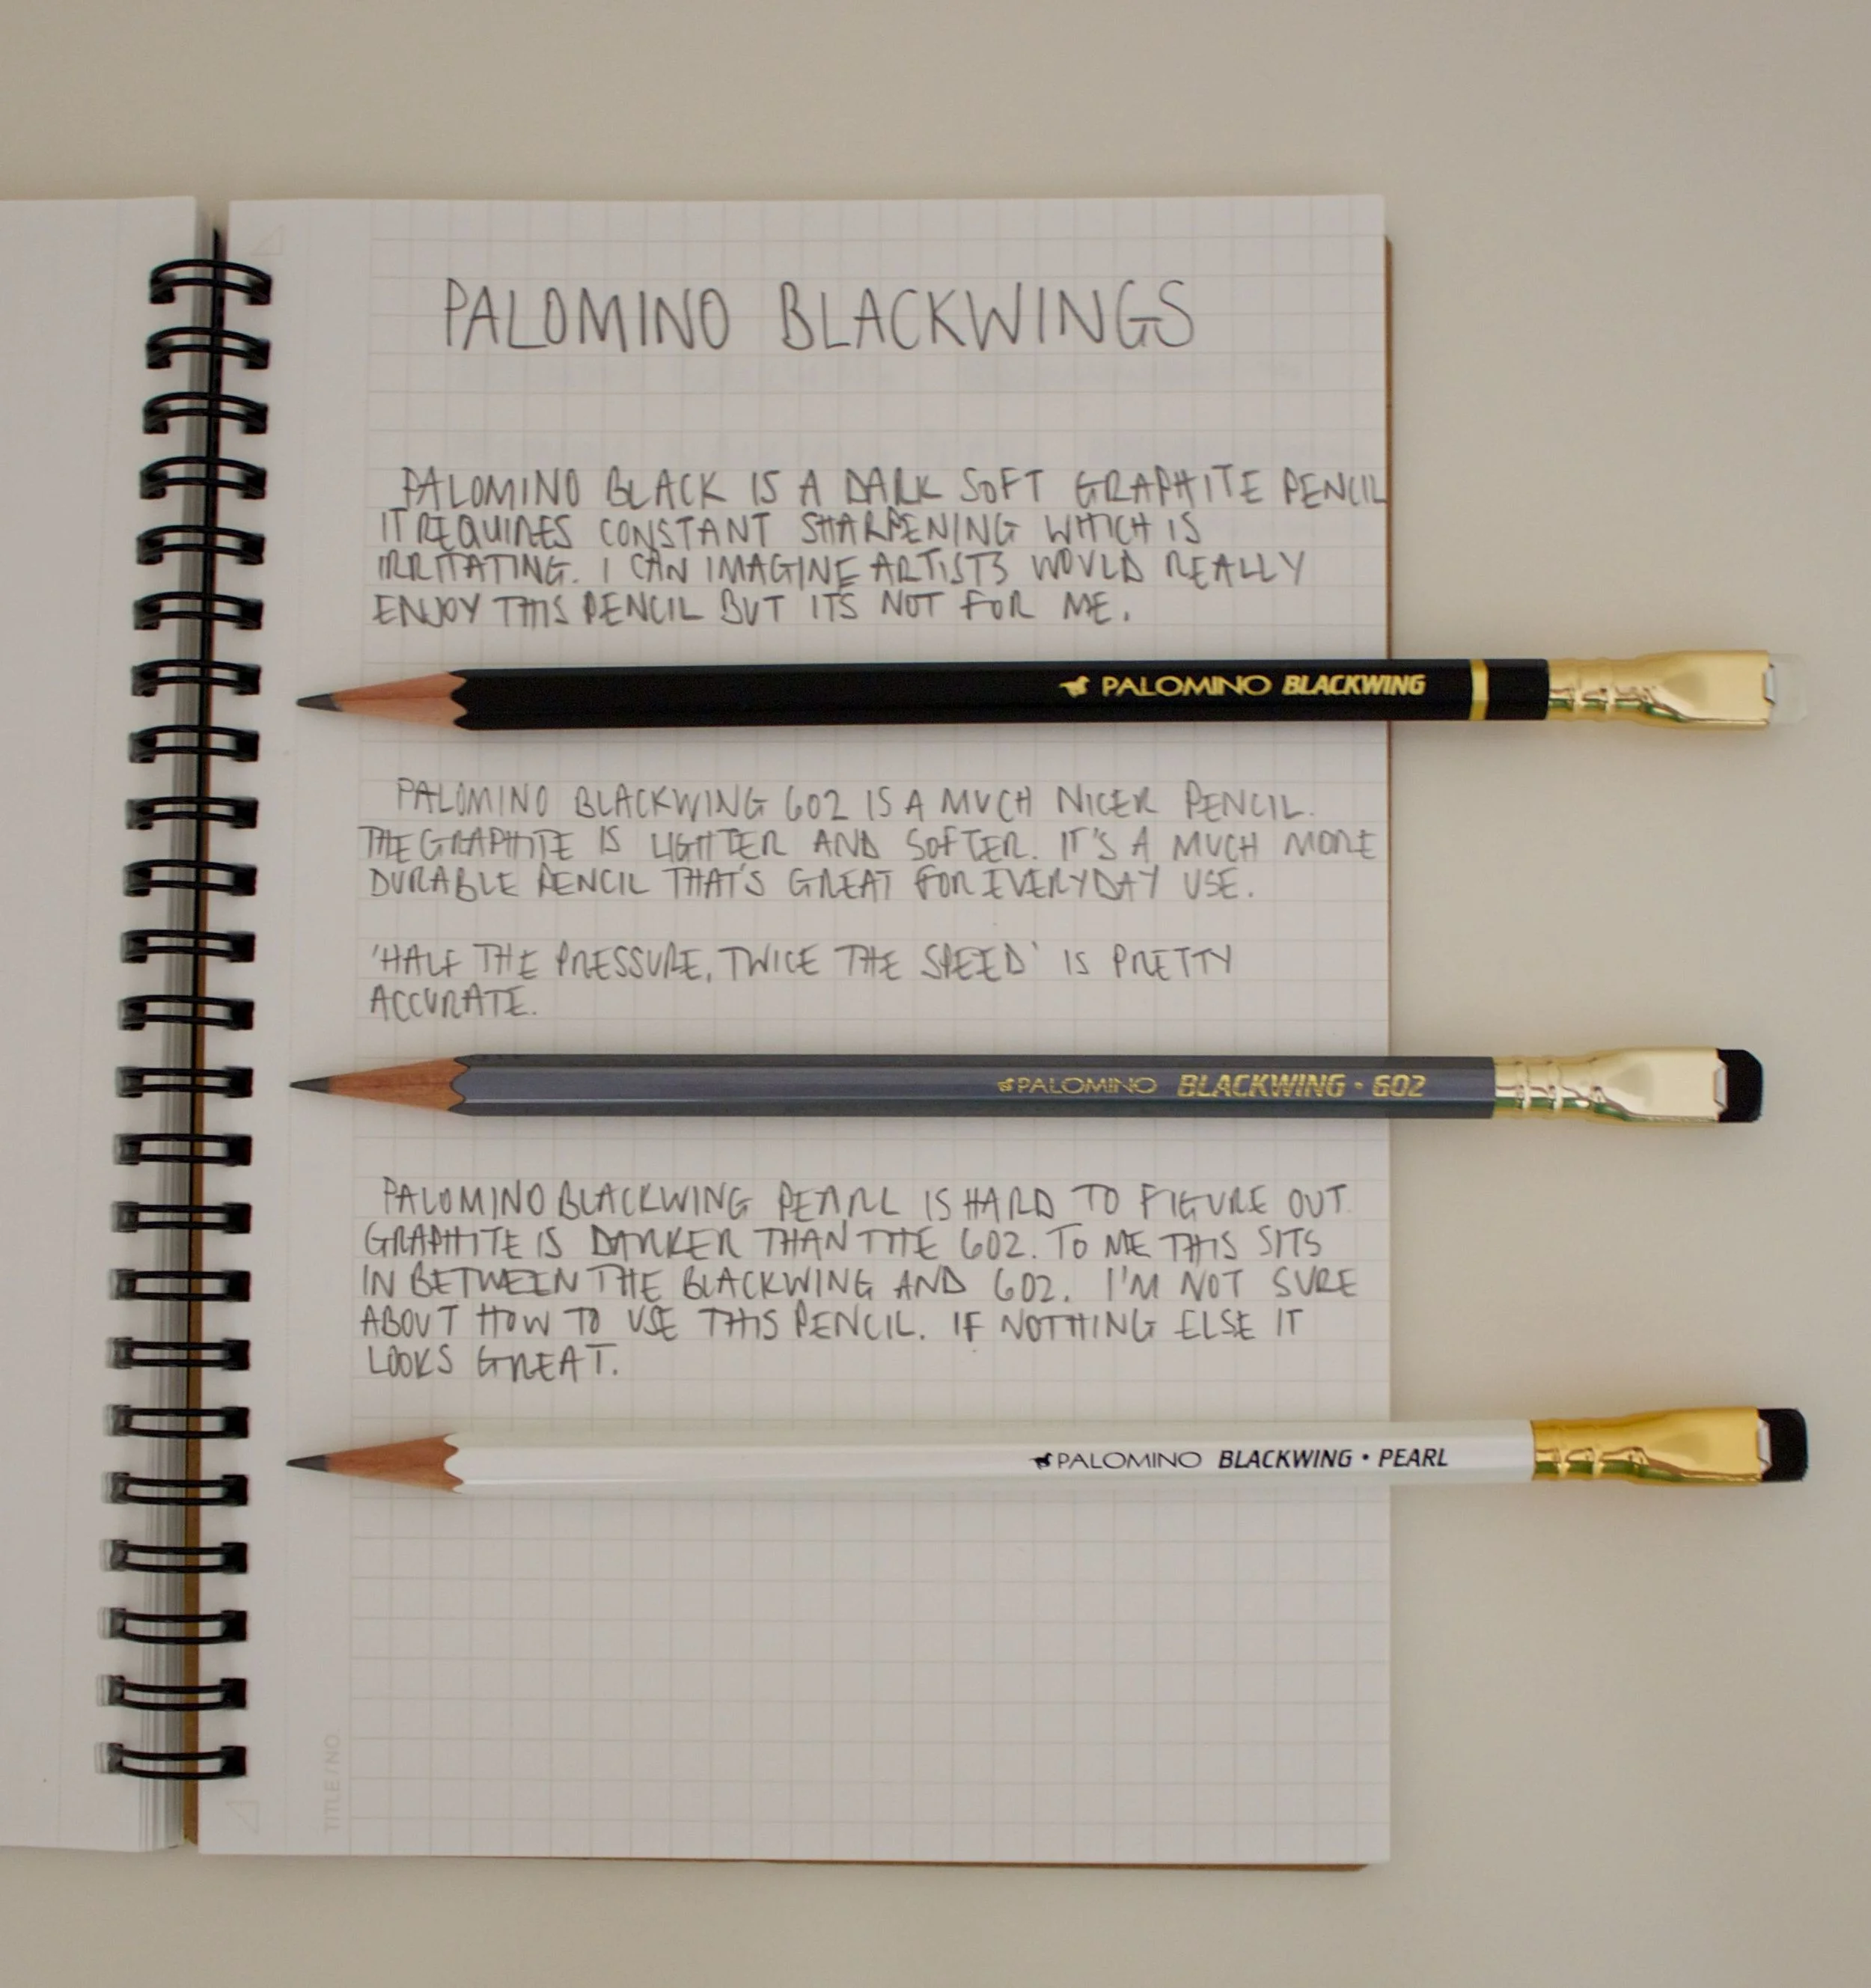 PALOMINO BLACKWINGS
PALOMINO BLACK IS A DARK SOFT GRAPHITE PENCIL
IT REQUIRES CONSTANT SHARPENING WHICH IS
IRRITATING. I CAN IMAGINE ARTISTS WOULD REALLY
ENJOY THIS PENCIL BUT ITS NOT FOR ME.
PALOMINO BLACKWING
PALOMINO BLACKWING 602 IS A MUCH NICER PENCIL.
THE GRAPHITE IS LIGHTER AND SOFTER. IT'S A MUCH MORE
DURABLE PENCIL THAT'S GREAT FOR EVERYDAY USE.
'HALF THE PRESSURE, TWICE THE SPEED' IS PRETTY
ACCURATE.
PALOMINO BLACKWING • 602
PALOMINO BLACKWING PEARL IS HARD TO FIGURE OUT.
GRAPHITE IS DARKER THAN THE 602. TO ME THIS SITS
IN BETWEEN THE BLACKWING AND 602. I'M NOT SURE
ABOUT HOW TO USE THIS PENCIL. IF NOTHING ELSE IT
LOOKS GREAT.
PALOMINO BLACKWING • PEARL
TITLE / NO.